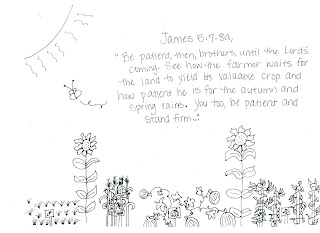 James 5:7-8a,
"Be patient, then, brothers, until the Lord's
coming. See how the farmer waits for
the land to yield its valuable crop and
how patient he is for the autumn and
spring rains. You too, be patient and
stand firm..."